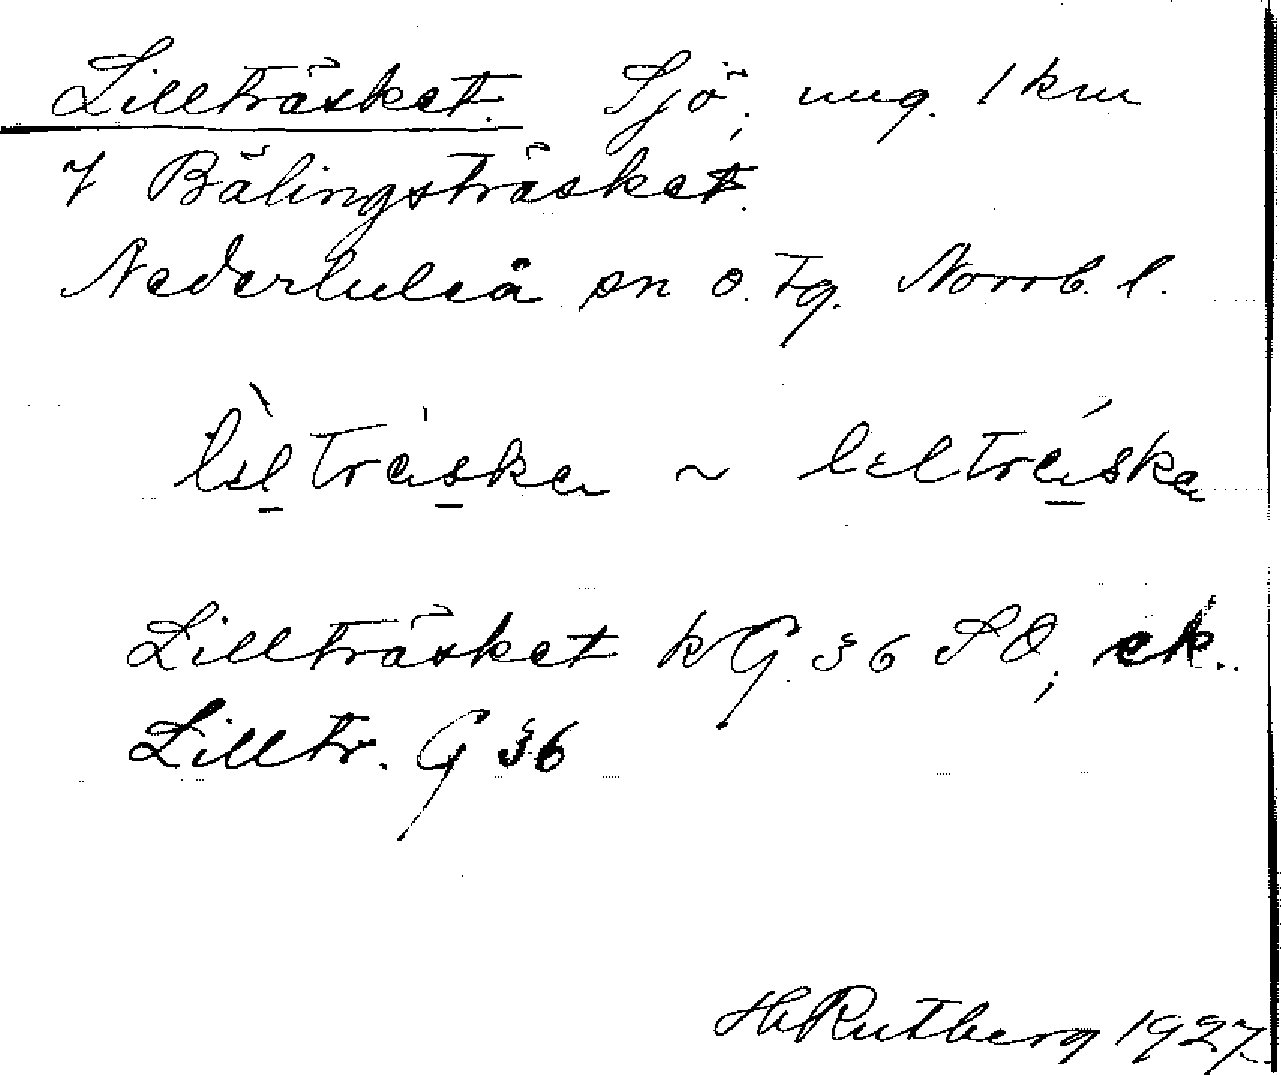 Lillträsket. Sjö, ung. 1 km
7 Bälingsträsket.
Nederluleå sn o. tg. Norrb. l.
liltrӕska ~ liltrӕska
Lillträsket kG 36 SO, ek.
Lilltr. G 36
H Rutberg 1927